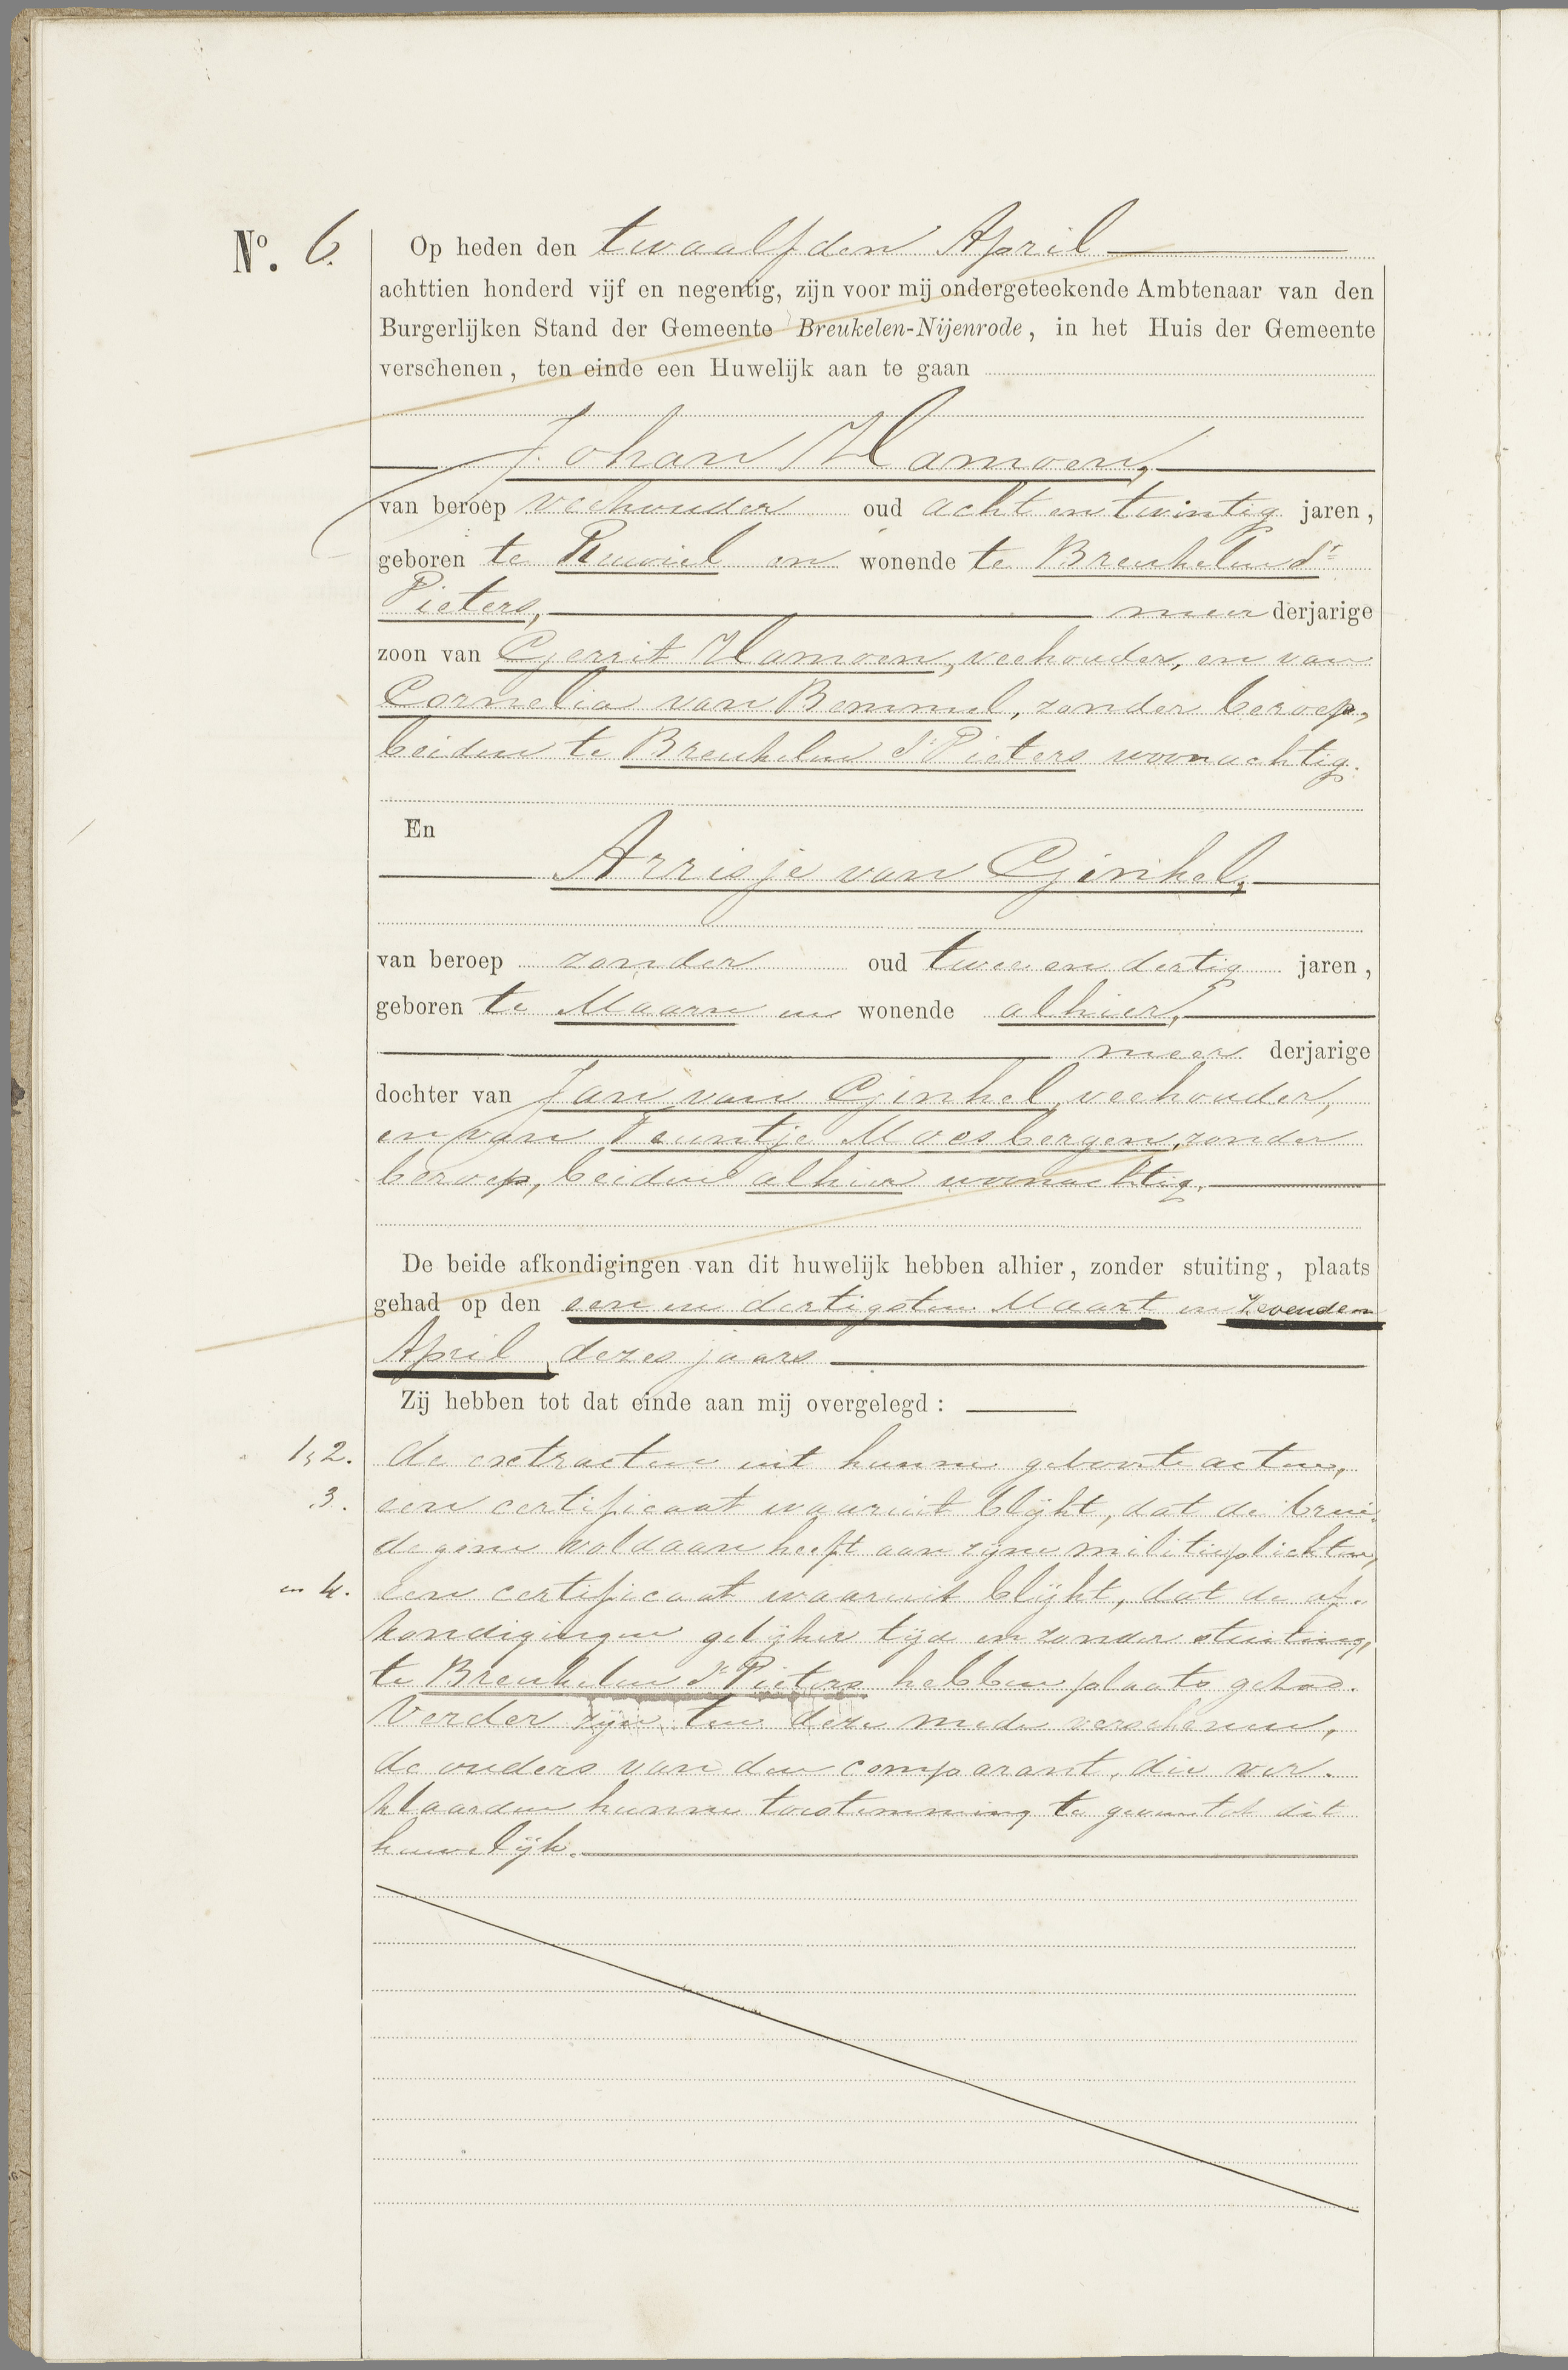 No. 6. Op heden den twaalfden April
achttien honderd vijf en negentig, zijn voor mij ondergeteekende Ambtenaar van den
Burgerlijken Stand der Gemeente Breukelen-Nijenrode, in het Huis der Gemeente
verschenen, ten einde een Huwelijk aan te gaan
Johan Hamoen,
van beroep veehouder oud acht en twintig jaren,
geboren te Ruwiel en wonende te Breukelen St
Pieters, meer derjarige
zoon van Gerrit Hamoen, veehouder, en van
Cornelia van Bemmel, zonder beroep,
beiden te Breukelen St Pieters woonachtig.
En
Arrisje van Ginkel,
van beroep zonder oud twee en dertig jaren,
geboren te Maarn en wonende alhier,
meer derjarige
dochter van Jan van Ginkel, veehouder,
en van Teuntje Moesbergen, zonder
beroep, beiden alhier woonachtig.
De beide afkondigingen van dit huwelijk hebben alhier, zonder stuiting, plaats
gehad op den een en dertigsten Maart en zevenden
April dezes jaars
Zij hebben tot dat einde aan mij overgelegd:
1, 2. de extracten uit hunne geboorte acten,
3. een certificaat waaruit blijkt, dat de brui-
degom voldaan heeft aan zijne militieplichten,
en 4. een certificaat waaruit blijkt, dat de af-
kondigingen gelijker tijd en zonder stuiting,
te Breukelen St Pieters hebben plaats gehad.
Verder zijn ten deze mede verschenen,
de ouders van den comparant, die ver-
klaarden hunne toestemming te geven tot dit
huwelijk.